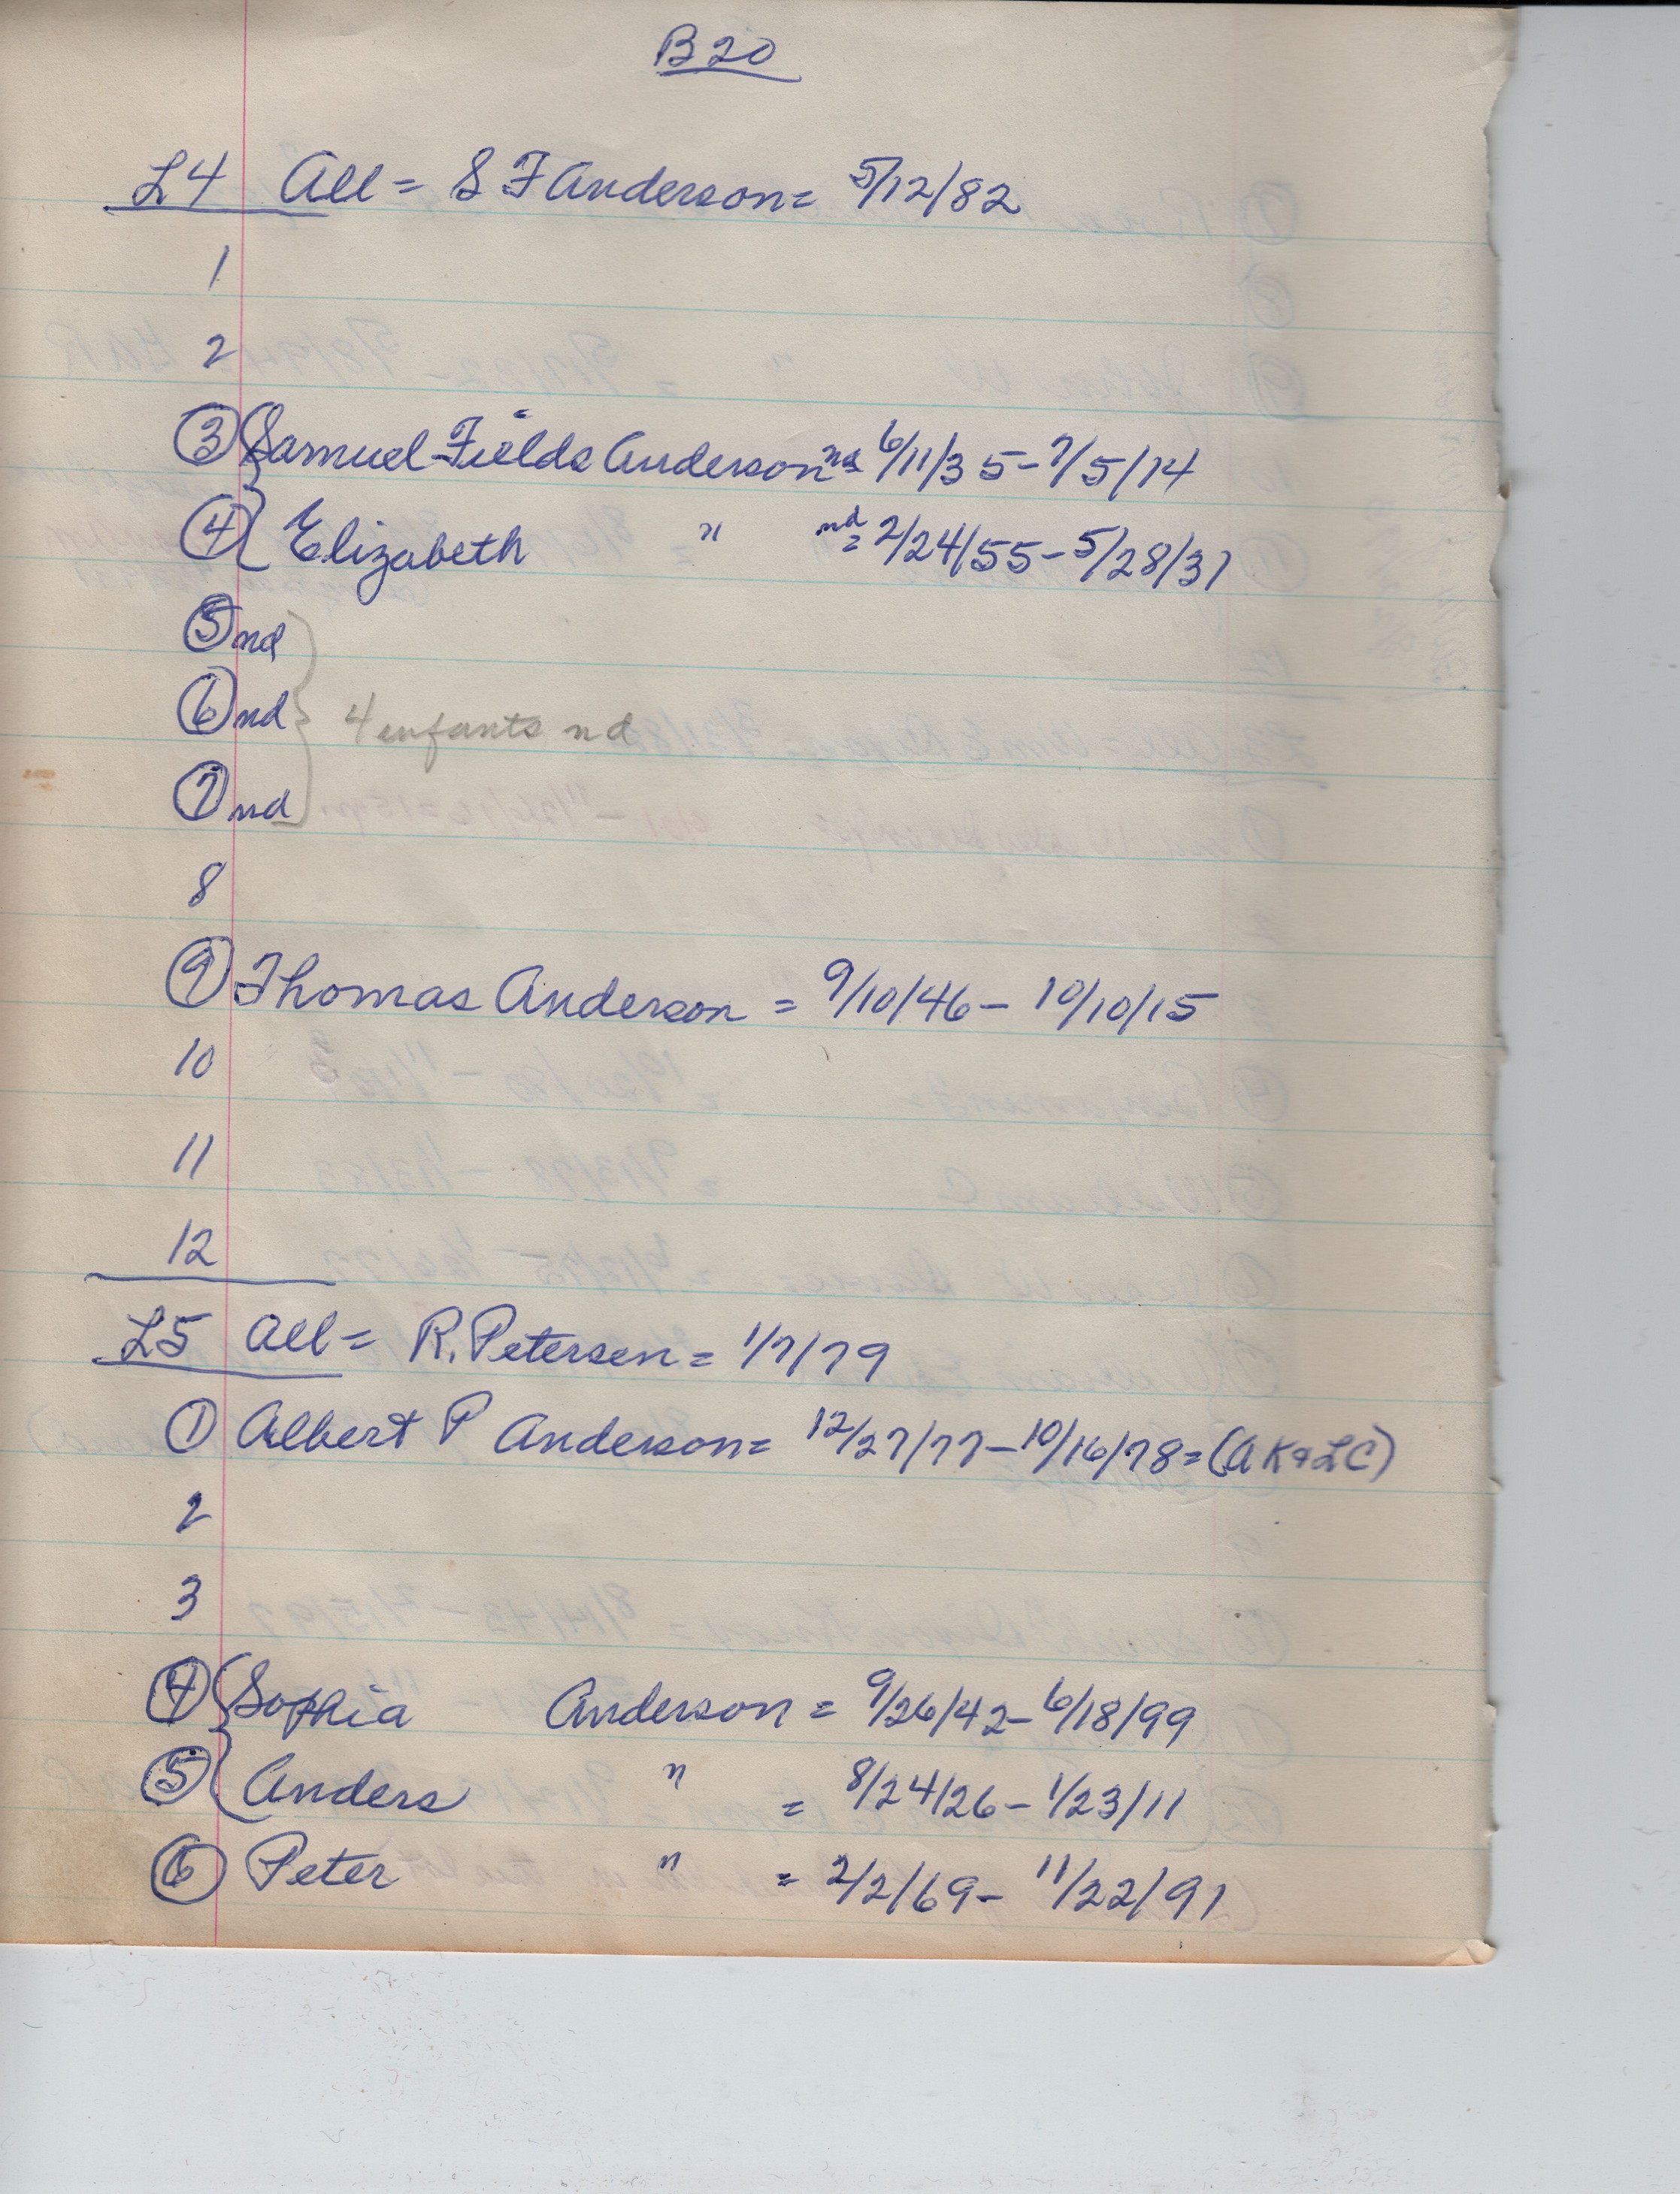 B20
L4 All = S F Anderson = 5/12/82
1
2
③ Samuel Fields Anderson nd = 6/11/35 - 7/5/14
④ Elizabeth " nd = 2/24/55 - 5/28/31
⑤ nd
⑥ nd 4 enfants nd
⑦ nd
8
⑨ Thomas Anderson = 9/10/46 - 10/10/15
10
11
12
L5 All = R. Petersen = 1/7/79
① Albert P Anderson = 12/27/77 - 10/16/78 = (A K & L C)
2
3
④ Sophia Anderson = 9/26/42 - 6/18/99
⑤ Anders " = 8/24/26 - 1/23/11
⑥ Peter " = 2/2/69 - 11/22/91